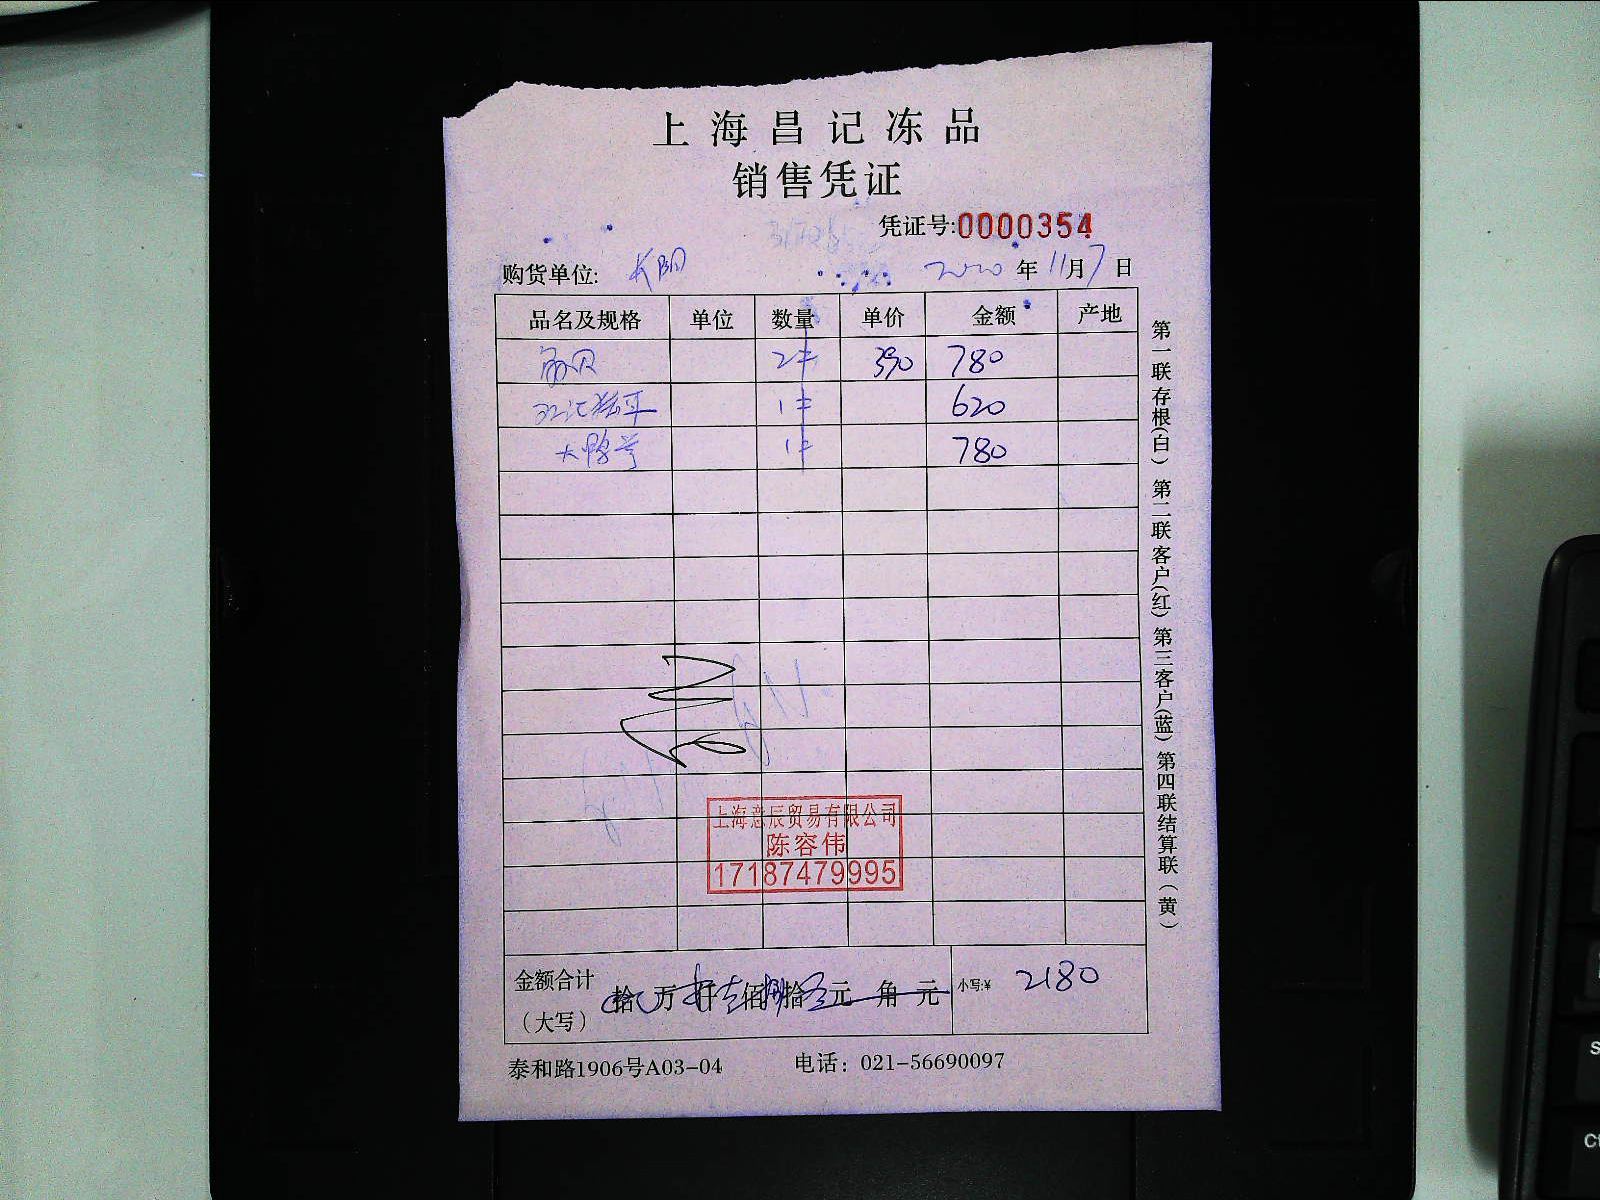 上海昌记冻品
销售凭证
凭证号:0000354
购货单位: 长阳 2020年11月7日
品名及规格 单位 数量 单价 金额 产地
2件 390 780
1件 620
大鸭 1件 780
上海意辰贸易有限公司
陈容伟
17187479995
金额合计
(大写)
拾 万 仟 佰 捌拾 元 角 元 小写:¥ 2180
泰和路1906号A03-04 电话: 021-56690097
第一联存根(白) 第二联客户(红) 第三客户(蓝) 第四联结算联(黄)